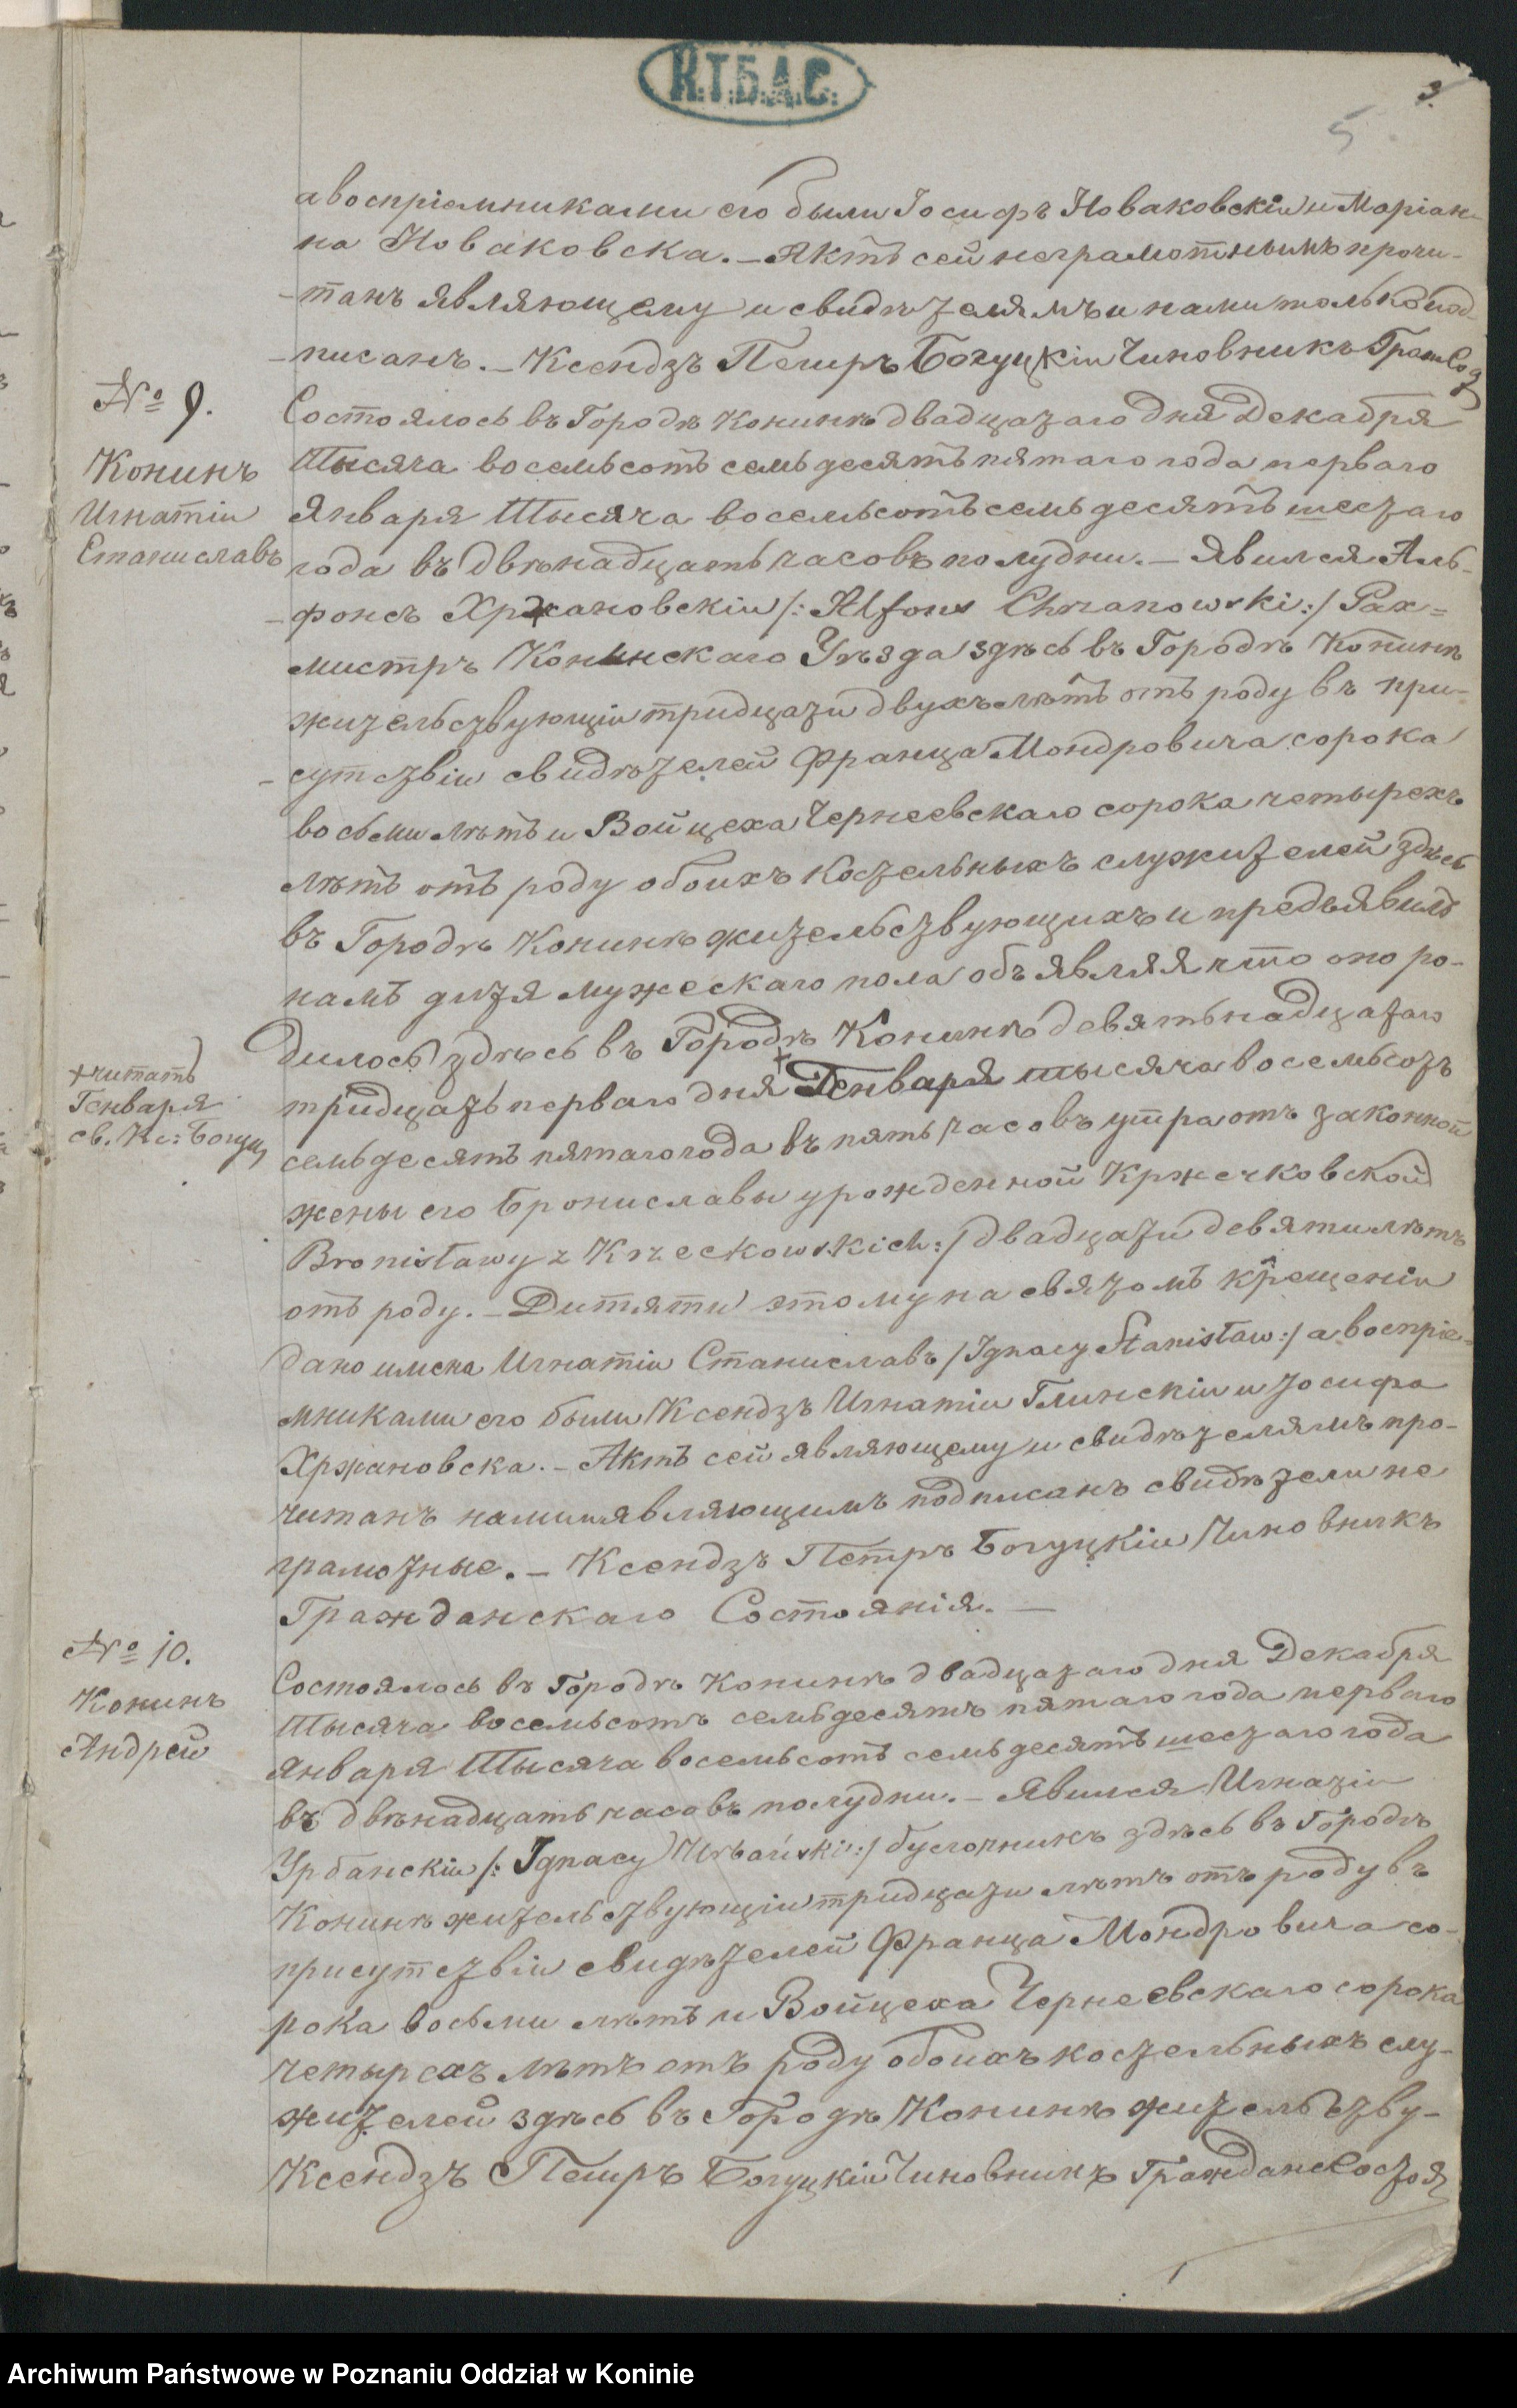 К.Т.Б.А.С.
3.
5
а воспріемниками его были Іосифъ Новаковскій и Маріан-
на Новаковска. — Актъ сей неграмотнымъ прочи-
-танъ являющему и свидѣтелямъ и нами только под-
-писанъ. — Ксендзъ Петръ Богуцкій Чиновникъ
№ 9.
Конинъ
Игнатій
Станиславъ
Состоялось въ Городѣ Конинѣ двадцатаго дня Декабря
Тысяча восемьсотъ семьдесятъ пятаго года перваго
Января Тысяча восемьсотъ семьдесятъ шестаго
года въ двѣнадцать часовъ полудни. — Явился Аль-
-фонсъ Хржановскій /: Alfons Chrzanowski :/ Рах=
мистръ Конинскаго Уѣзда здѣсь въ Городѣ Конинѣ
жительствующій тридцати двухъ лѣтъ отъ роду въ при-
-сутствіи свидѣтелей Франца Мондровича сорока
восьми лѣтъ и Войцеха Чернеевскаго сорока четырехъ
лѣтъ отъ роду обоихъ костельныхъ служителей здѣсь
въ Городѣ Конинѣ жительствующихъ и предъявилъ
намъ дитя мужескаго пола объявляя что оно ро-
дилось здѣсь въ Городѣ Конинѣ девятьнадцатаго
+читать
Генваря
св. Кс: Богуц
тридцать перваго дня + Генваря тысяча восемьсотъ
семьдесятъ пятаго года въ пять часовъ утра отъ законной
жены его Брониславы урожденной Кржечковской
Bronisławy z Krzeckowskich :/ двадцати девяти лѣтъ
отъ роду. — Дитяти этому на святомъ крещеніи
дано имена Игнатій Станиславъ /Ignacy Stanisław :/ а воспріе-
мниками его были Ксендзъ Игнатій Глинскій и Іосифа
Хржановска. — Актъ сей являющему и свидѣтелямъ про-
читанъ нами и являющимъ подписанъ свидѣтели не
грамотные. — Ксендзъ Петръ Богуцкій Чиновникъ
Гражданскаго Состоянія. —
№ 10.
Конинъ
Андрей
Состоялось въ Городѣ Конинѣ двадцатаго дня Декабря
Тысяча восемьсотъ семьдесятъ пятаго года перваго
Января Тысяча восемьсотъ семьдесятъ шестаго года
въ двѣнадцать часовъ полудни. — Явился Игнатій
Урбанскій /: Ignacy Urbański :/ здѣсь въ Городѣ
Конинѣ жительствующій тридцати лѣтъ отъ роду въ
присутствіи свидѣтелей Франца Мондровича со-
рока восьми лѣтъ и Войцеха Чернеевскаго сорока
четырехъ лѣтъ отъ роду обоихъ костельныхъ слу-
жителей здѣсь въ Городѣ Конинѣ жительству-
Ксендзъ Петръ Богуцкій Чиновникъ
Archiwum Państwowe w Poznaniu Oddział w Koninie